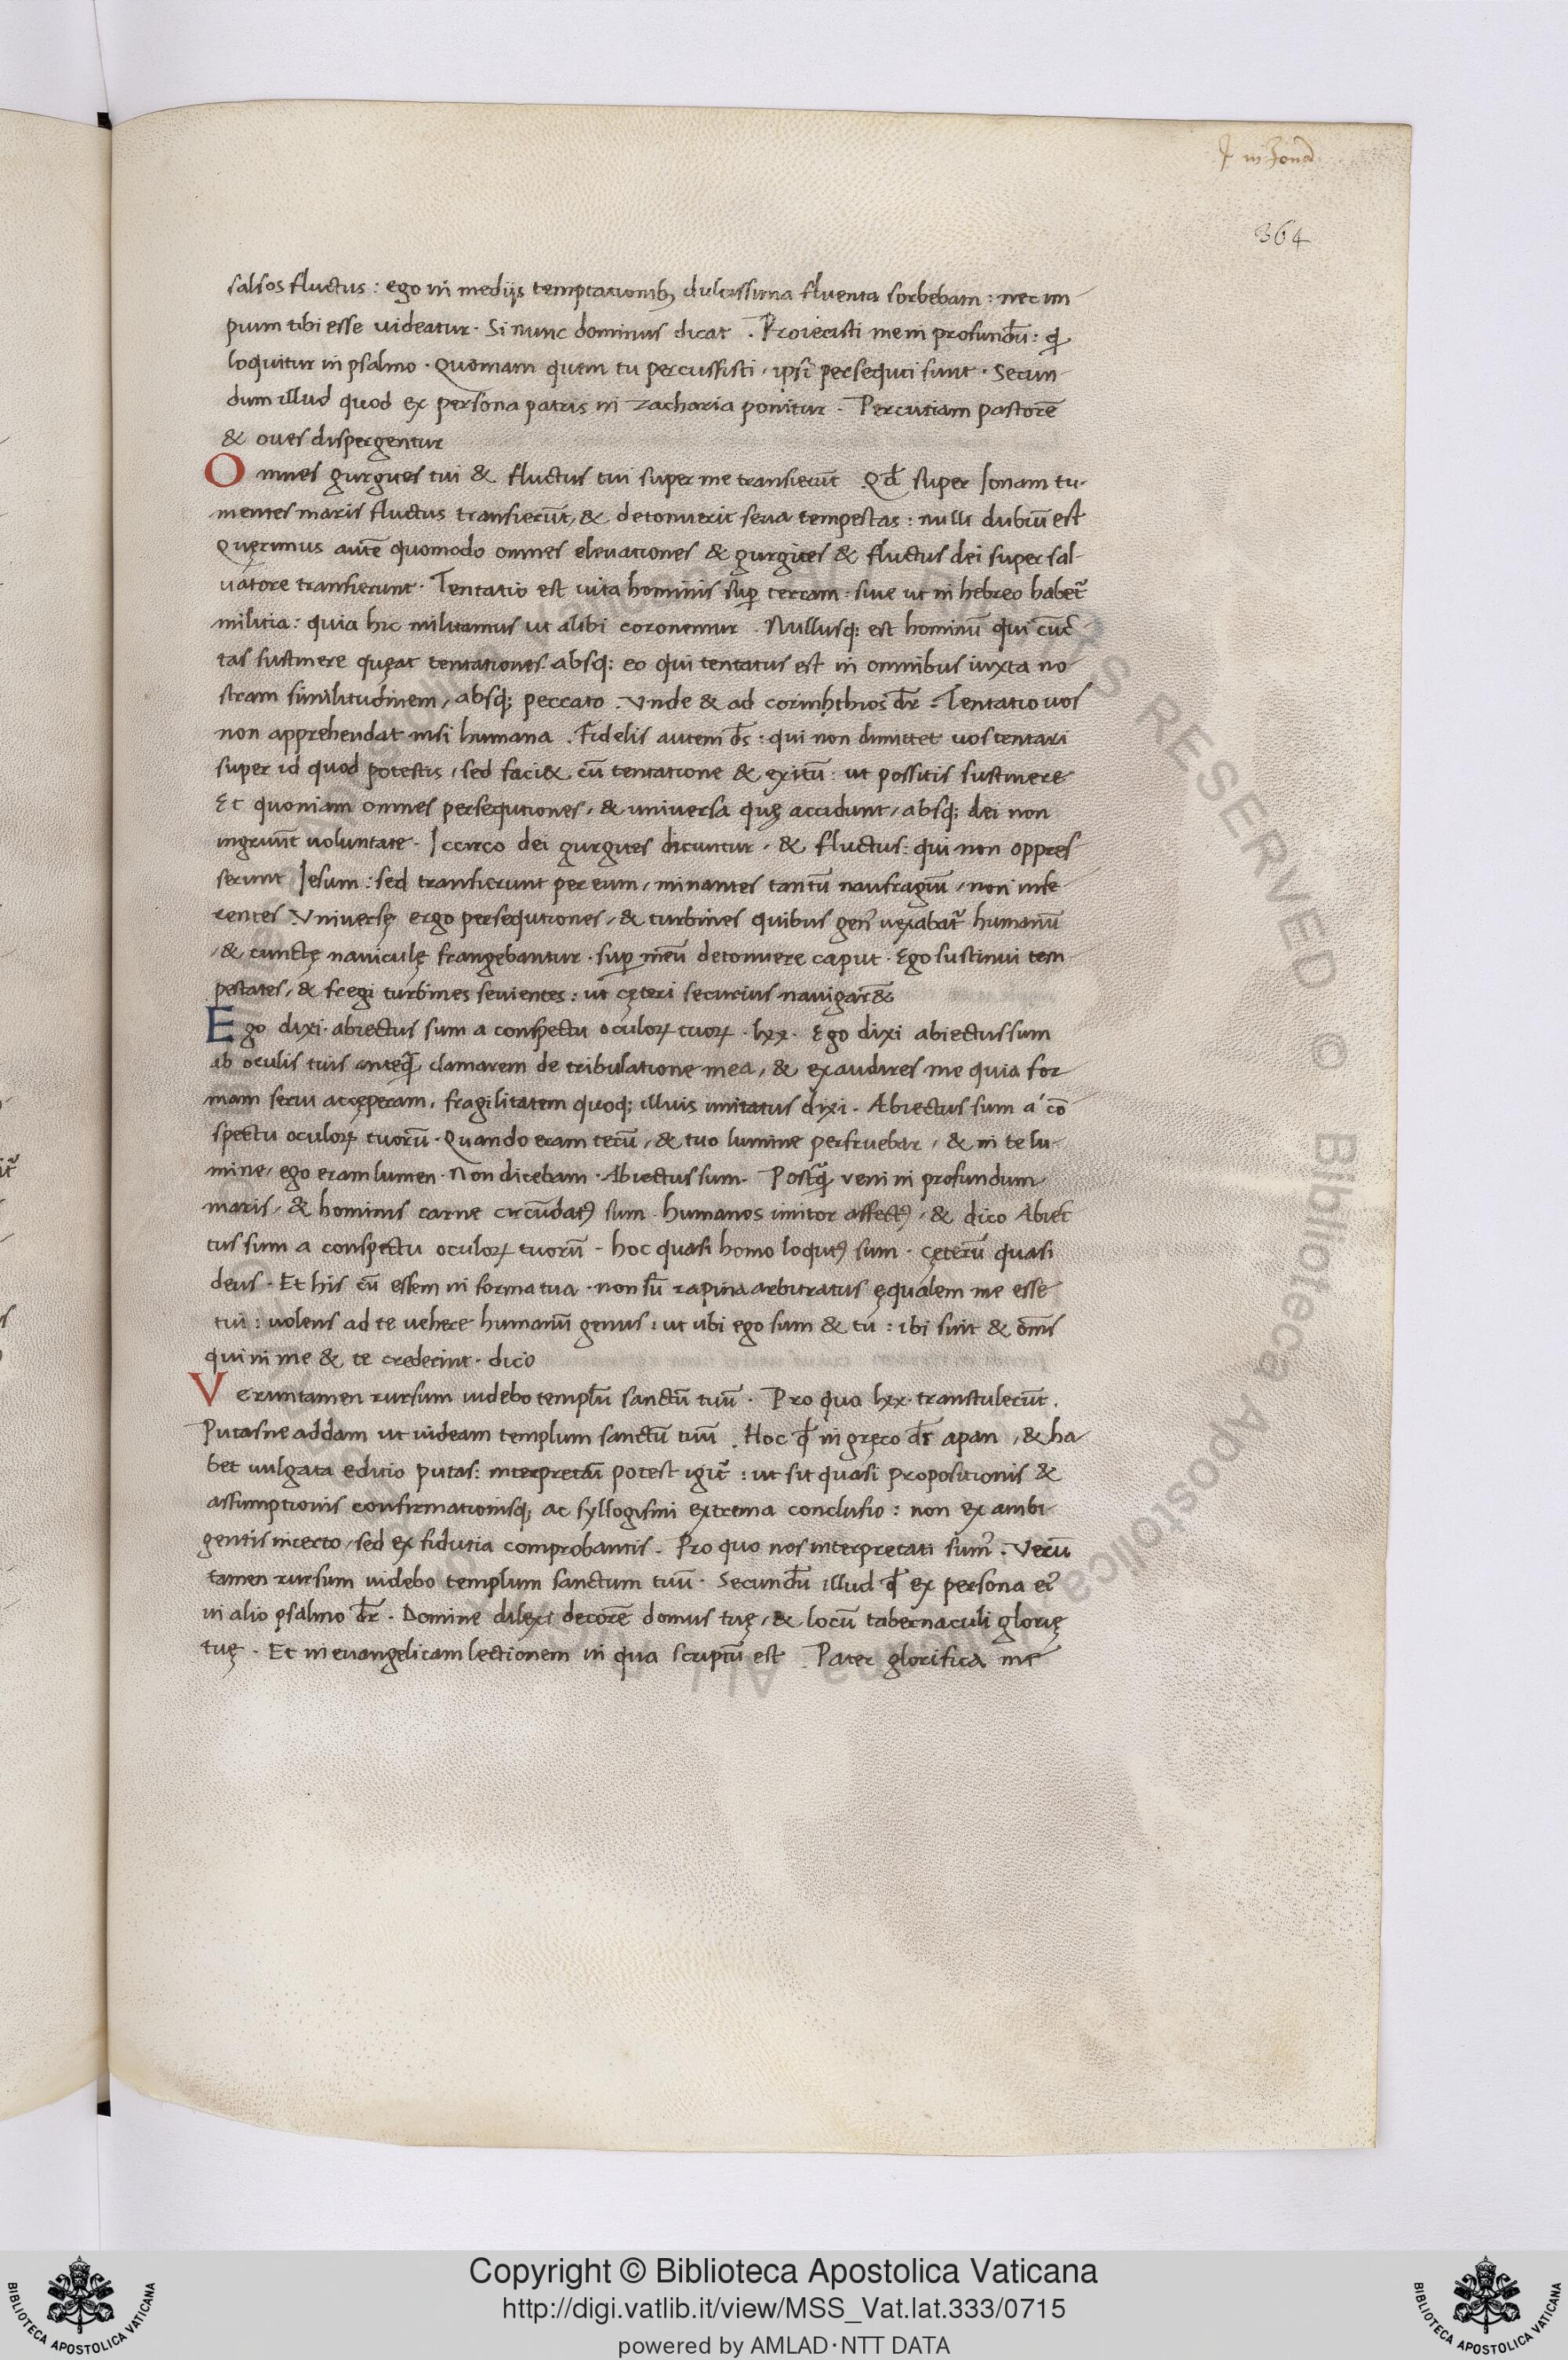 P in Jona
364
salsos fluctus : ego in medijs temptationibꝫ dulcissima fluenta sorbebam : nec im
pium tibi esse uideatur · Si nunc dominus dicat . Proiecisti me in profundū : q̄
loquitur in psalmo · Quoniam quem tu percussisti , ipsi persequti sunt · Secun
dum illud quod ex persona patris in zacharia ponitur . Percutiam pastorē
& oues dispergentur
Omnes gurgites tui & fluctus tui super me transierūt Qd̄ super Jonam tu-
mentes maris fluctus transierūt, & detonuerit seua tempestas : nulli dubiū est
Quęrimus autē quomodo omnes eleuationes & gurgites & fluctus dei super sal-
uatore transierunt · Tentatio est uita hominis sup̱ terram · siue ut in hebreo habet᷑
militia : quia hic militamus ut alibi coronemur . Nullusq; est hominū qui cūc
tas sustinere quęat tentationes absq; eo qui tentatus est in omnibus iuxta no
stram similitudinem , absq; peccato . Vnde & ad corinhthios dr̄ : Tentatio uos
non apprehendat nisi humana . Fidelis autem d̄s · qui non dimittet uos tentari
super id quod potestis , sed faci& cū tentatione & exitū : ut possitis sustinere
Et quoniam omnes persequtiones , & uniuersa quę accidunt , absq; dei non
ingruūt uoluntate · Iccirco dei gurgites dicuntur , & fluctus : qui non oppres
serunt Jesum : sed transierunt per eum , minantes tantū naufragiū , non infe
rentes Vniuersę ergo persequtiones , & turbines quibus gen᷒ uexabat᷑ humanū
, & cunctę nauiculę frangebantur . sup̱ meū detonuere caput · Ego sustinui tem
pestates , & fregi turbines seuientes : ut cęteri securius nauigar&
Ego dixi · abiectus sum a conspectu oculoꝝ tuoꝝ · lxx · Ego dixi abiectus sum
ab oculis tuis anteq̄ clamarem de tribulatione mea , & exaudires me quia for
mam serui accęperam , fragilitatem quoq; illius imitatus dixi . Abiectus sum a cō
spectu oculoꝝ tuorū · Quando eram tecū , & tuo lumine perfruebar , & in te lu-
mine , ego eram lumen · Non dicebam · Abiectus sum . Postq̄ veni in profundum
maris , & hominis carne circūdat᷒ sum . humanos imitor affect᷒ , & dico Abiec
tus sum a conspectu oculoꝝ tuorū - hoc quasi homo loqut᷒ sum · cęterū quasi
deus · Et his cū essem in forma tua · non sū rapina arbitratus ęqualem me esse
tui : uolens ad te uehere humanū genus : ut ubi ego sum & tu : ibi sint & oms̄
qui in me & te crederint · dico
Veruntamen rursum uidebo templū sanctū tuū · Pro quo lxx · transtulerūt .
Putasne addam ut uideam templum sanctū tuū . Hoc qd̄ in gręco dr̄ apan , & ha
bet uulgata editio putas : interpretari potest igit᷑ : ut sit quasi propositionis &
assumptionis confirmationisq; ac syllogismi extrema conclusio : non ex ambi
gentis incerto , sed ex fidutia comprobantis . Pro quo nos interpretati sum᷒ . Verū
tamen rursum uidebo templum sanctum tuū · Secundū illud qd̄ ex persona ei᷒
in alio psalmo dr̄ . Domine dilexi decorē domus tuę , & locū tabernaculi glorię
tuę . Et in euangelicam lectionem in qua scriptū est . Pater glorifica me
Copyright © Biblioteca Apostolica Vaticana
http://digi.vatlib.it/view/MSS_Vat.lat.333/0715
powered by AMLAD·NTT DATA
BIBLIOTECA APOSTOLICA VATICANA
BIBLIOTECA APOSTOLICA VATICANA